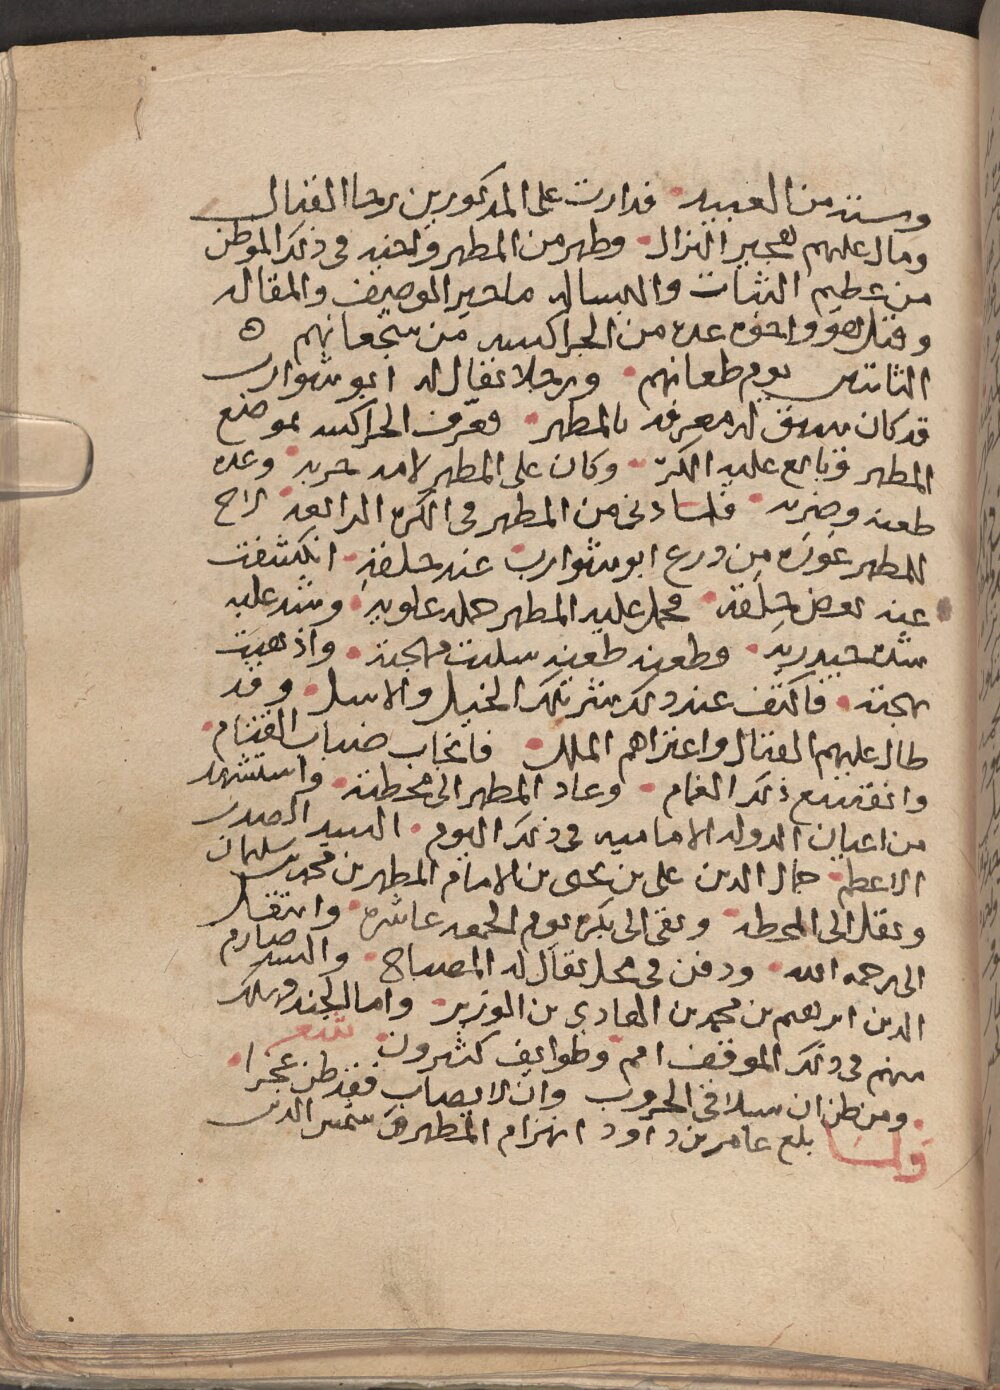 وستة من العبيد فدارت على المذكورين رحا القتال
ومال عليهم هجير النزال وظهر من المطهر واخيه في ذلك الموطن
من عظيم الثبات والبسالة ما حير الوصيف والمقالة
وقتل هو واخوه عدة من الجراكسة من شجعانهم
الثابتين يوم طعانهم ورجلا يقال له ابو شوارب
قد كان سبق له معرفة بالمطهر فعرف الجراكسة بموضع
المطهر وتابع عليه الكر وكان على المطهر لامة حربه وعدة
طعنه وضربه فلما دنى من المطهر في الكرة الرابعة لاح
للمطهر عورة من درع ابو شوارب عند حلقة انكشفت
عنه بعض حلقه فحمل عليه المطهر حملة علوية وشد عليه
شدة حيدرية وطعنه طعنة سلبت مهجته واذهبت
بهجته فانكف عند ذلك شر تلك الخيل والاسل وقد
طال عليهم القتال واعتراهم الملل فانجاب ضباب القتام
وانقشع ذلك الغمام وعاد المطهر الى محطته واستشهد
من اعيان الدولة الامامية في ذلك اليوم السيد الصدر
الاعظم جمال الدين علي بن يحيى بن الامام المطهر بن محمد بن سليمان
ونقل الى المحطة وبقي الى بكرة يوم الجمعة عاشره وانتقل
الى رحمة الله ودفن في محل يقال له المصباح والسيد صارم
الدين ابرهيم بن محمد بن الهادي بن الوزير واما الجند فهلك
منهم في ذلك الموقف امم وطوايف كثيرون شعر
ومن ظن ان سيلاقي الحروب وان لا يصاب فقد ظن عجزا
ولما بلغ عامر بن داود انهزام المطهر بن شمس الدين